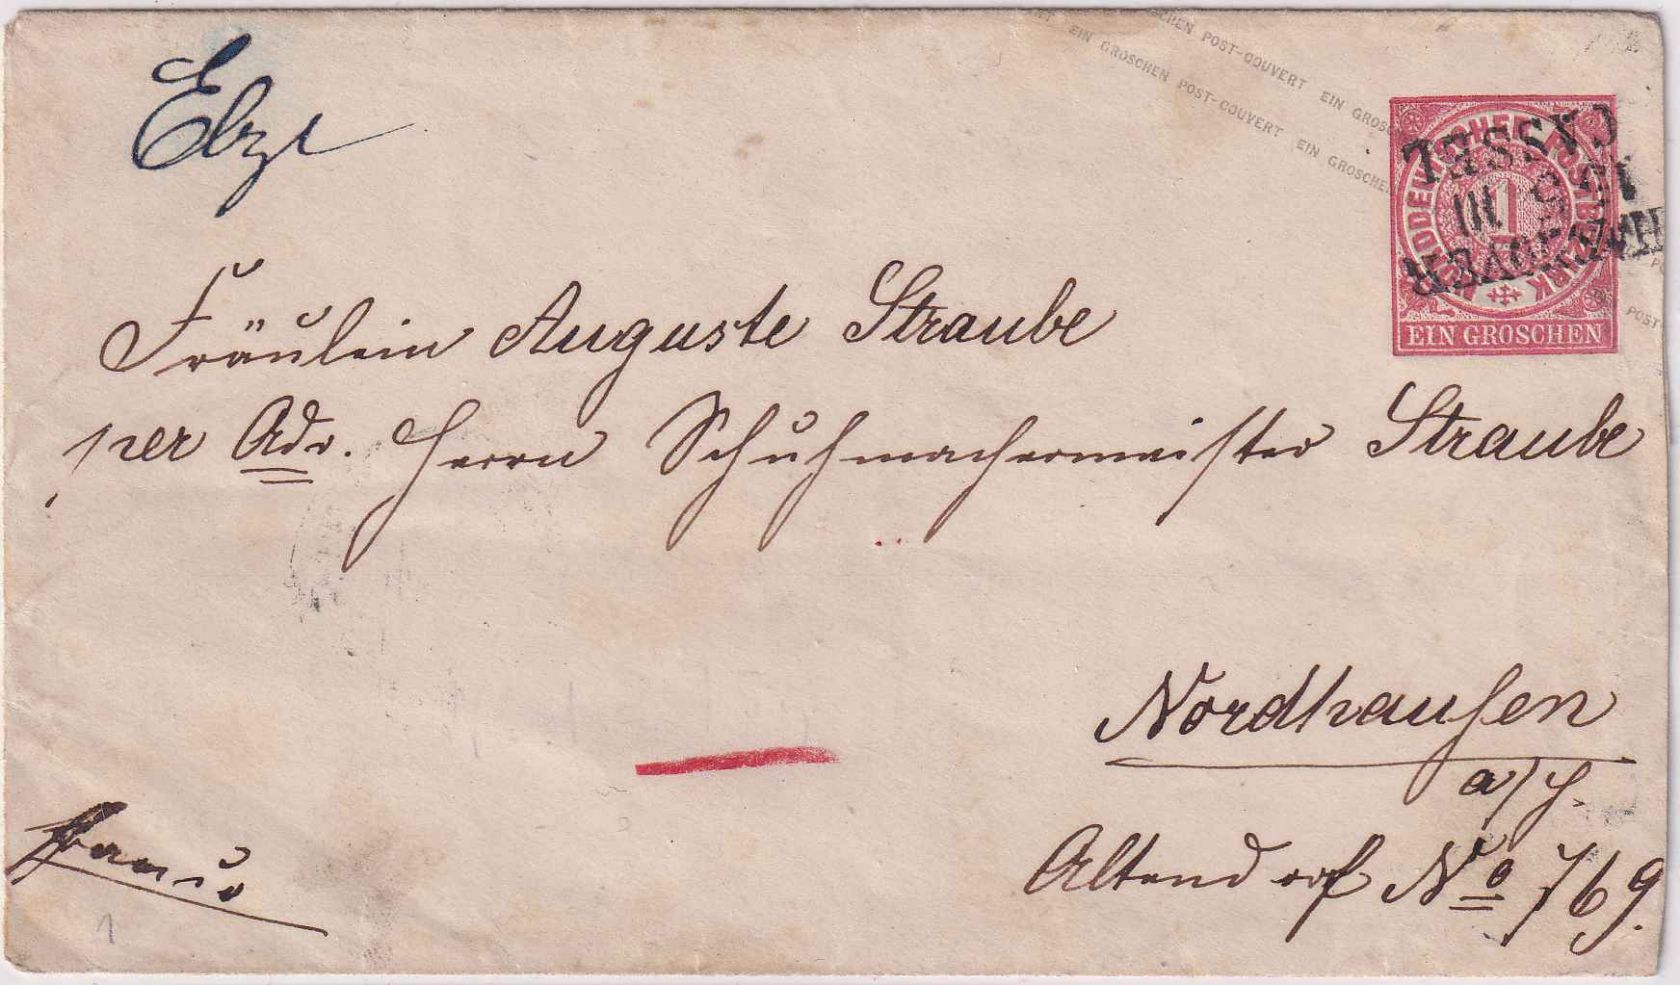 EIN GROSCHEN POST-COUVERT EIN GROSCHEN
EIN GROSCHEN POST-COUVERT EIN GROSCHEN
Elze
NORDDEUTSCHER POSTBEZIRK
1
EIN GROSCHEN
HANNOVER
III
CASSEL
Fräulein Auguste Straube
per Adr. Herrn Schuhmachermeister Straube
Nordhausen
a/H.
Altendorf No 769.
franco
1